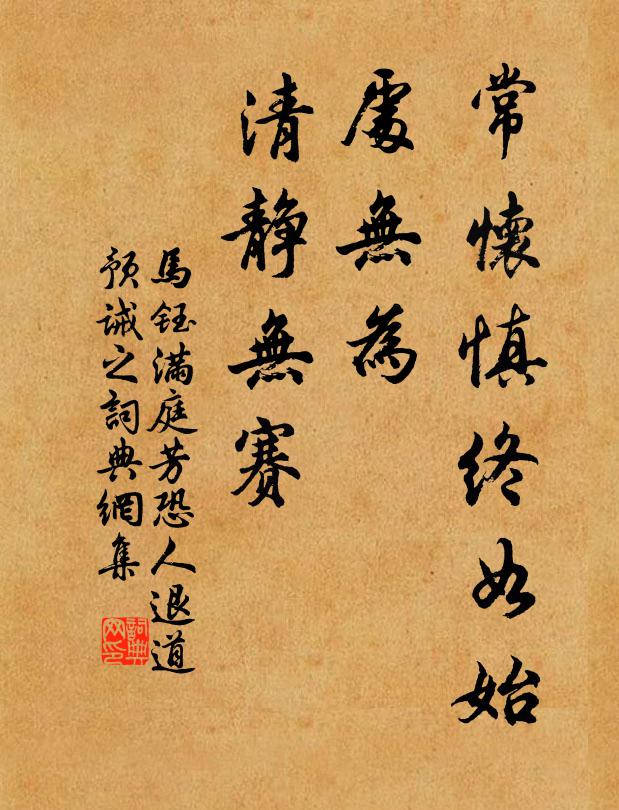 常懷慎終如始
處無為
清靜無賽
馬鈺滿庭芳恐人退道
預誡之詞典網集
詞典網印